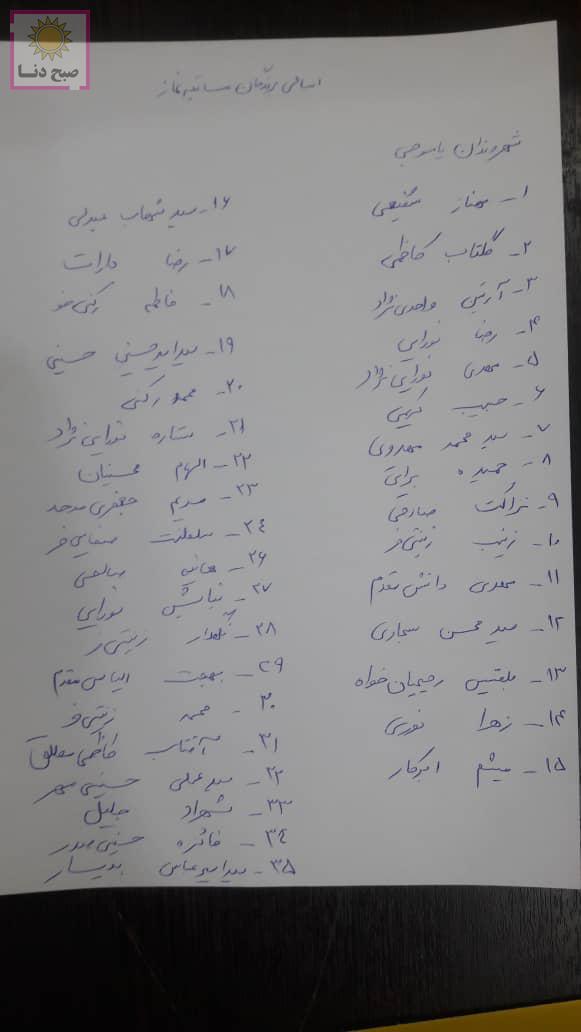 صبح دنا
اسامی
شهروندان یاسوجی
۱- مهناز شفیعی
۲- گلتاب کاظمی
۳- آرتین واحدی نژاد
۴- رضا نورایی
۵- مهدی نورایی نژاد
۶- حبیب
۷- سید محمد مهدوی
۸- حمیده براتی
۹- نزاکت صادقی
۱۰- زینب زینتی فر
۱۱- مهدی دانش مقدم
۱۲- سید محسن سجادی
۱۳- بلقیس رحیمیان خواه
۱۴- زهرا نوری
۱۵- میثم
۱۶- سید شهاب عبدلی
۱۷- رضا
۱۸- فاطمه
۱۹- حسینی
۲۰- محمد رکنی
۲۱- ستاره نورایی نژاد
۲۲- الهام محسنیان
۲۳- مریم جعفری
۲۴- سلطنت صفایی فر
۲۶- هانیه صالحی
۲۷- نیایش نورایی
۲۸- نگهدار زینتی فر
۲۹- بهجت الیاس مقدم
۳۰- محمد زینتی فر
۳۱- آفتاب کاظمی مطلق
۳۲- سید علی حسینی مهر
۳۳- شهزاد جلیل
۳۴- فائزه حسینی
۳۵- سید امیرعباس